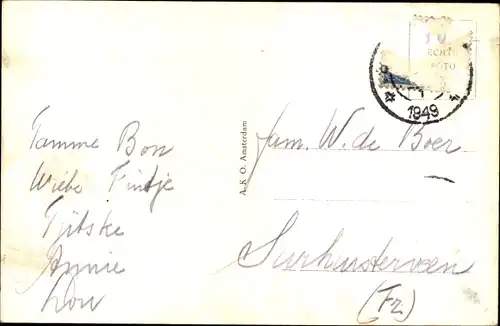 Tamme Bon
Wiebe Fintje
Tjitske
Annie
Lou
A. R. O. Amsterdam
1949
ECHTE
FOTO
fam. W. de Boer
Surhuisterveen
(Fr.)